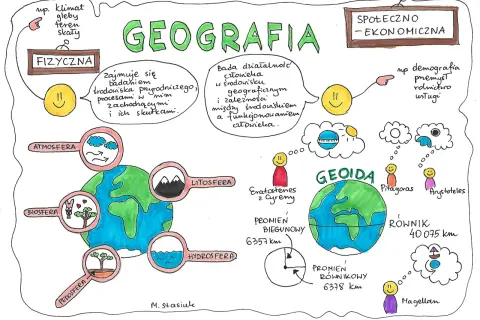 np. klimat
gleby
teren
skały
GEOGRAFIA
SPOŁECZNO
- EKONOMICZNA
FIZYCZNA
Zajmuje się
badaniem
środowiska przyrodniczego,
procesami w nim
zachodzącymi
i ich skutkami.
Bada działalność
człowieka
w środowisku
geograficznym
i zależności
między środowiskiem
a funkcjonowaniem
człowieka.
np demografia
przemysł
rolnictwo
usługi
ATMOSFERA
LITOSFERA
BIOSFERA
HYDROSFERA
PEDOSFERA
Eratostenes
z Cyreny
GEOIDA
Pitagoras
Arystoteles
PROMIEŃ
BIEGUNOWY
6357 km
RÓWNIK
40 075 km
PROMIEŃ
RÓWNIKOWY
6378 km
Magellan
M. Stasiuk